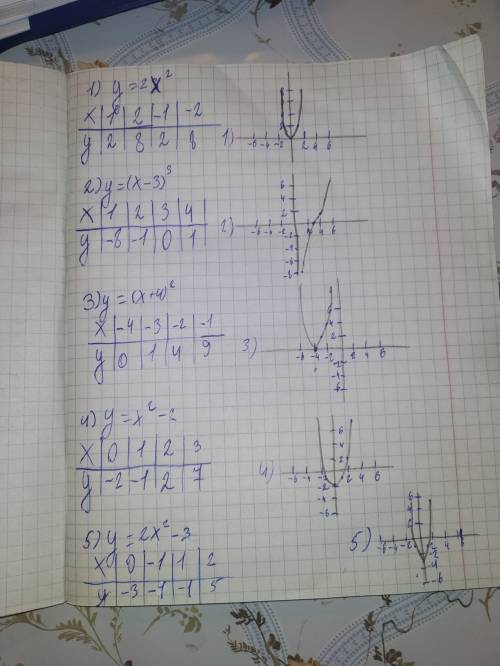 1) y=2x²
x 1 2 -1 -2
y 2 8 2 8
1)
-6 -4 -2 2 4 6
2) y=(x-3)³
x 1 2 3 4
y -8 -1 0 1
2)
6
4
2
-6 -4 -2 4 6
-2
-4
-6
-8
3) y=(x+4)²
x -4 -3 -2 -1
y 0 1 4 9
3)
-6 -4 -2 2 4 6
-2
-4
-6
4) y=x²-2
x 0 1 2 3
y -2 -1 2 7
4)
6
4
2
-6 -4 -2 2 4 6
-2
-4
-6
5) y=2x²-3
x 0 -1 1 2
y -3 -1 -1 5
5)
6
4
2
-6 -4 -2 2 4 6
-2
-4
-6